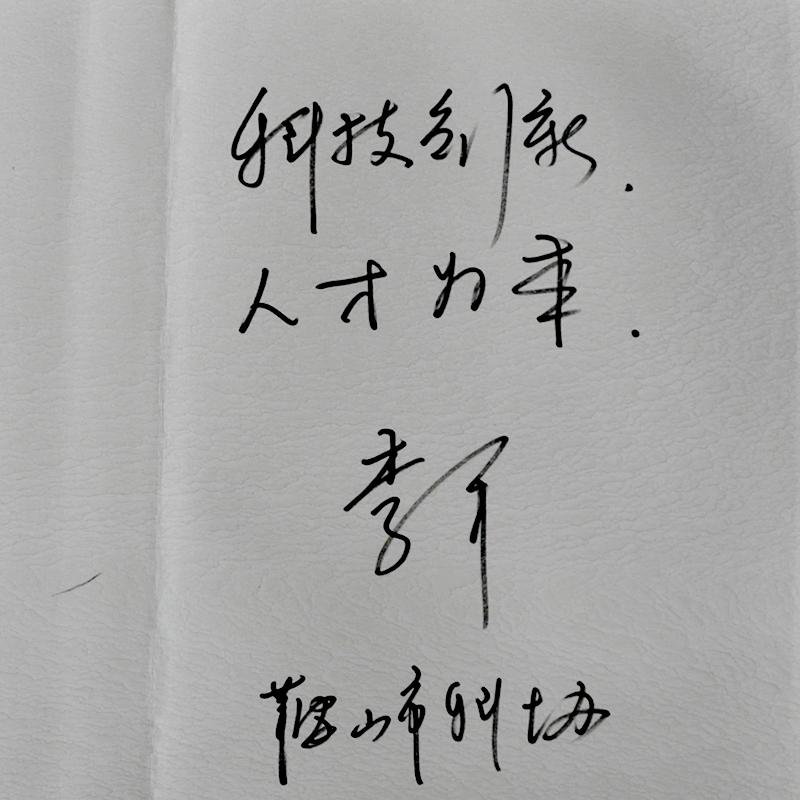 科技创新.
人才为本.
李军
鞍山市科协